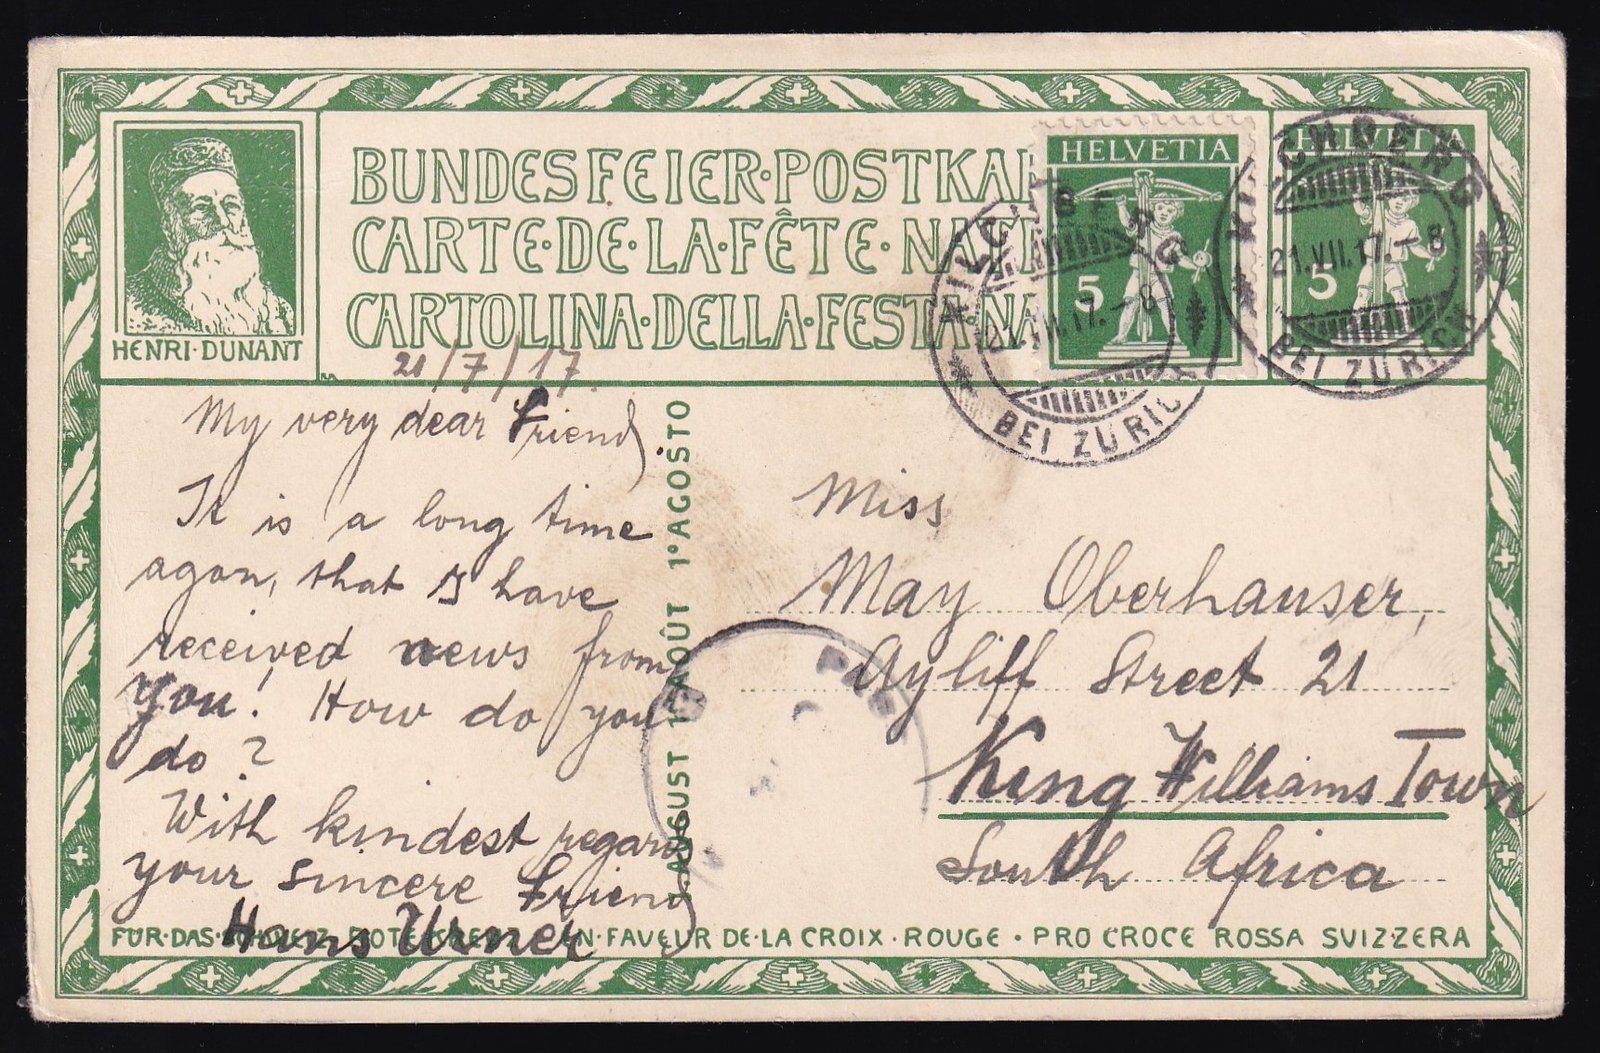 HENRI·DUNANT
BUNDESFEIER·POSTKAR
CARTE·DE·LA·FÊTE·NATI
CARTOLINA·DELLA·FESTA·NA
HELVETIA
5
HELVETIA
5
KILCHBERG
21.VII.17.–8
BEI ZÜRICH
KILCHBERG
21.VII.17.–8
BEI ZÜRICH
21/7/17.
My very dear Friend,
It is a long time
agon, that I have
received news from
you! How do you
do?
With kindest regards
your sincere friend
Hans Urner
1. AUGUST 1er AOÛT 1º AGOSTO
Miss
May Oberhauser,
Ayliff Street 21
King Williams Town
South Africa
FÜR·DAS·SCHWEIZ. ROTE KREUZ · EN·FAVEUR DE·LA CROIX·ROUGE · PRO CROCE ROSSA SVIZZERA